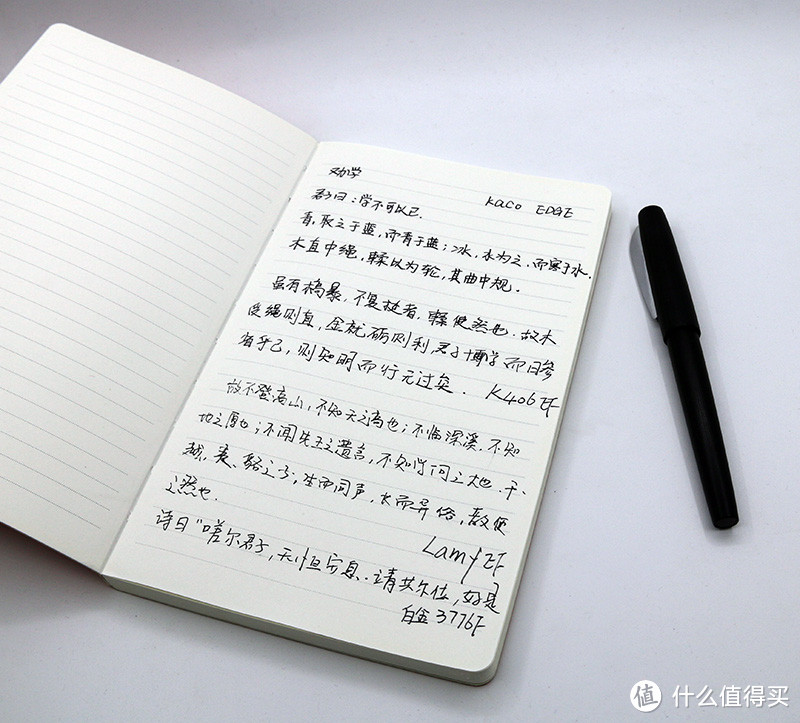 劝学
KACO EDGE
君子曰：学不可以已.
青，取之于蓝，而青于蓝；冰，水为之，而寒于水.
木直中绳，輮以为轮，其曲中规.
虽有槁暴，不复挺者，輮使然也. 故木
受绳则直，金就砺则利，君子博学而日参
省乎己，则知明而行无过矣. K406 EF
故不登高山，不知天之高也；不临深溪，不知
地之厚也；不闻先王之遗言，不知学问之大也. 干、
越、夷、貉之子，生而同声，长而异俗，教使
之然也.
Lamy EF
诗曰“嗟尔君子，无恒安息. 靖共尔位，好是
白金 3776F
值 什么值得买